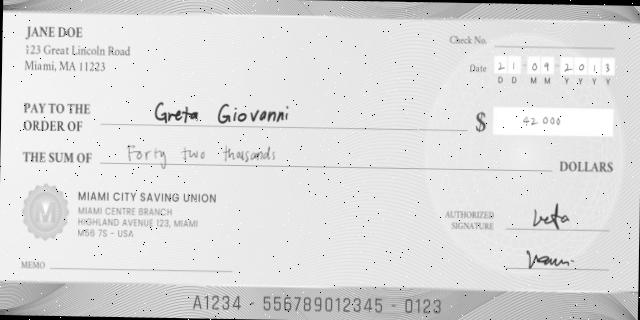 JANE DOE
123 Great Lincoln Road
Miami, MA 11223
Check No.
Date 21 09 2013
D D M M Y Y Y Y
PAY TO THE ORDER OF Greta Giovanni $ 42 000
THE SUM OF Forty two thousands DOLLARS
MIAMI CITY SAVING UNION
MIAMI CENTRE BRANCH
HIGHLAND AVENUE 123, MIAMI
M56 7S - USA
M
AUTHORIZED SIGNATURE
MEMO
A1234 - 556789012345 - 0123